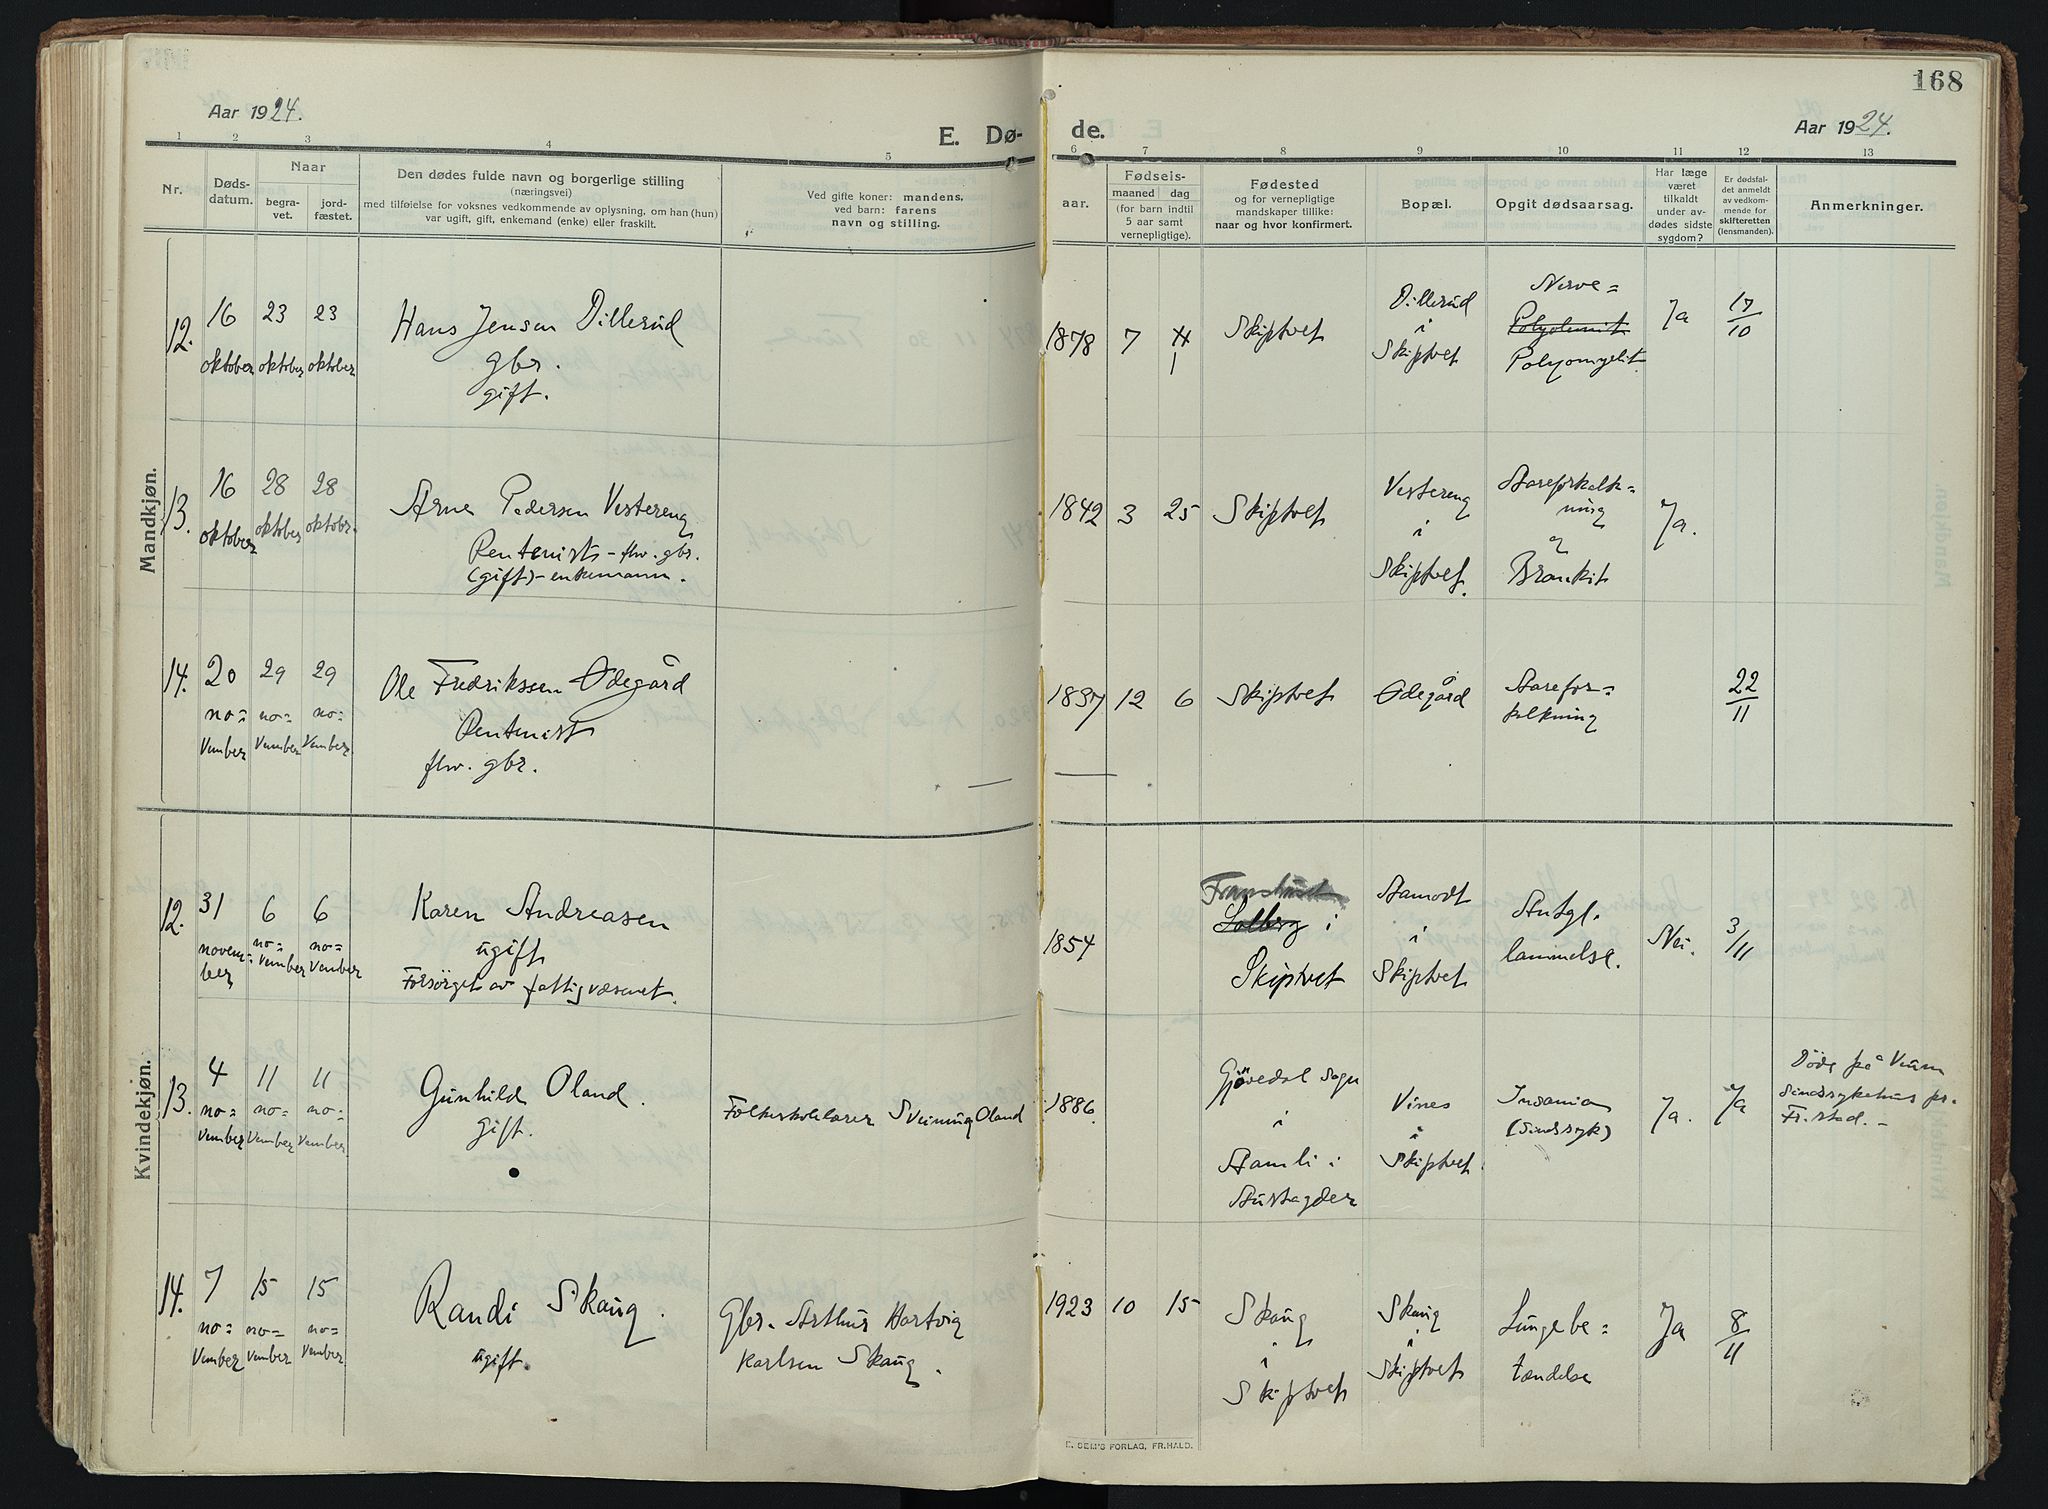 168
Aar 1924.
E. Dø-
de.
Aar 1924.
1 2 3 4 5 6 7 8 9 10 11 12 13
Nr.
Døds-
datum.
Naar
begra-
vet.
jord-
fæstet.
Den dødes fulde navn og borgerlige stilling
(næringsvei)
med tilføielse for voksnes vedkommende av oplysning, om han (hun)
var ugift, gift, enkemand (enke) eller fraskilt.
Ved gifte koner: mandens,
ved barn: farens
navn og stilling.
Fødsels-
aar.
maaned
dag
(for barn indtil
5 aar samt
vernepligtige).
Fødested
og for vernepligtige
mandskaper tillike:
naar og hvor konfirmert.
Bopæl.
Opgit dødsaarsag.
Har læge
været
tilkaldt
under av-
dødes sidste
sygdom?
Er dødsfal-
det anmeldt
av vedkom-
mende for
skifteretten
(lensmanden).
Anmerkninger.
Mandkjøn.
12.
16
oktober
23
oktober
23
oktober
Hans Jensen Dillerud
gbr.
gift.
1878
7
1
Skiptvet
Dillerud
i
Skiptvet
Nerve=
Polyomyelit
Ja
17/10
13.
16
oktober
28
oktober
28
oktobr.
Arne Pedersen Vestereng
Rentenist - fhv. gbr.
(gift) - enkemann.
1842
3
25
Skiptvet
Vestereng
i
Skiptvet.
Aareforkalk=
ning
og
Bronkit
Ja.
14.
20
no=
vember
29
no=
vember
29
no=
vember
Ole Fredrikssen Ødegård
Rentenist
fhv. gbr.
1837
12
6
Skiptvet
Ødegård
Aarefor=
kalkning
22/11
Kvindekjøn.
12.
31
novem=
ber
6
no=
vember
6
no=
vember
Karen Andreasen
ugift
Forsørget av fattigvæsenet.
1854
Solberg i
Skiptvet
Aamodt
i
Skiptvet
Antgl.
lammelse.
Nei.
3/11
13.
4
no=
vember
11
no=
vember
11
no=
vember
Gunhilde Oland.
gift.
Folkeskolelærer Sveinung Oland
1886.
Gjøvedal sogn
i
Aamli i
Austagder
Vines
i
Skiptvet.
Insania
(Sindssyk)
Ja.
Ja
Døde på Veum
sindssykehus pr.
Fr.stad. -
14.
7
no=
vember
15
no=
vember
15
no=
vember
Randi Skaug.
ugift.
Gbr. Arthur Hartvig
Karlsen Skaug.
1923
10
15
Skaug
i
Skiptvet
Skaug
i
Skiptvet
Lungebe=
tændelse
Ja
8/11
E. SEM'S FORLAG, FR.HALD.